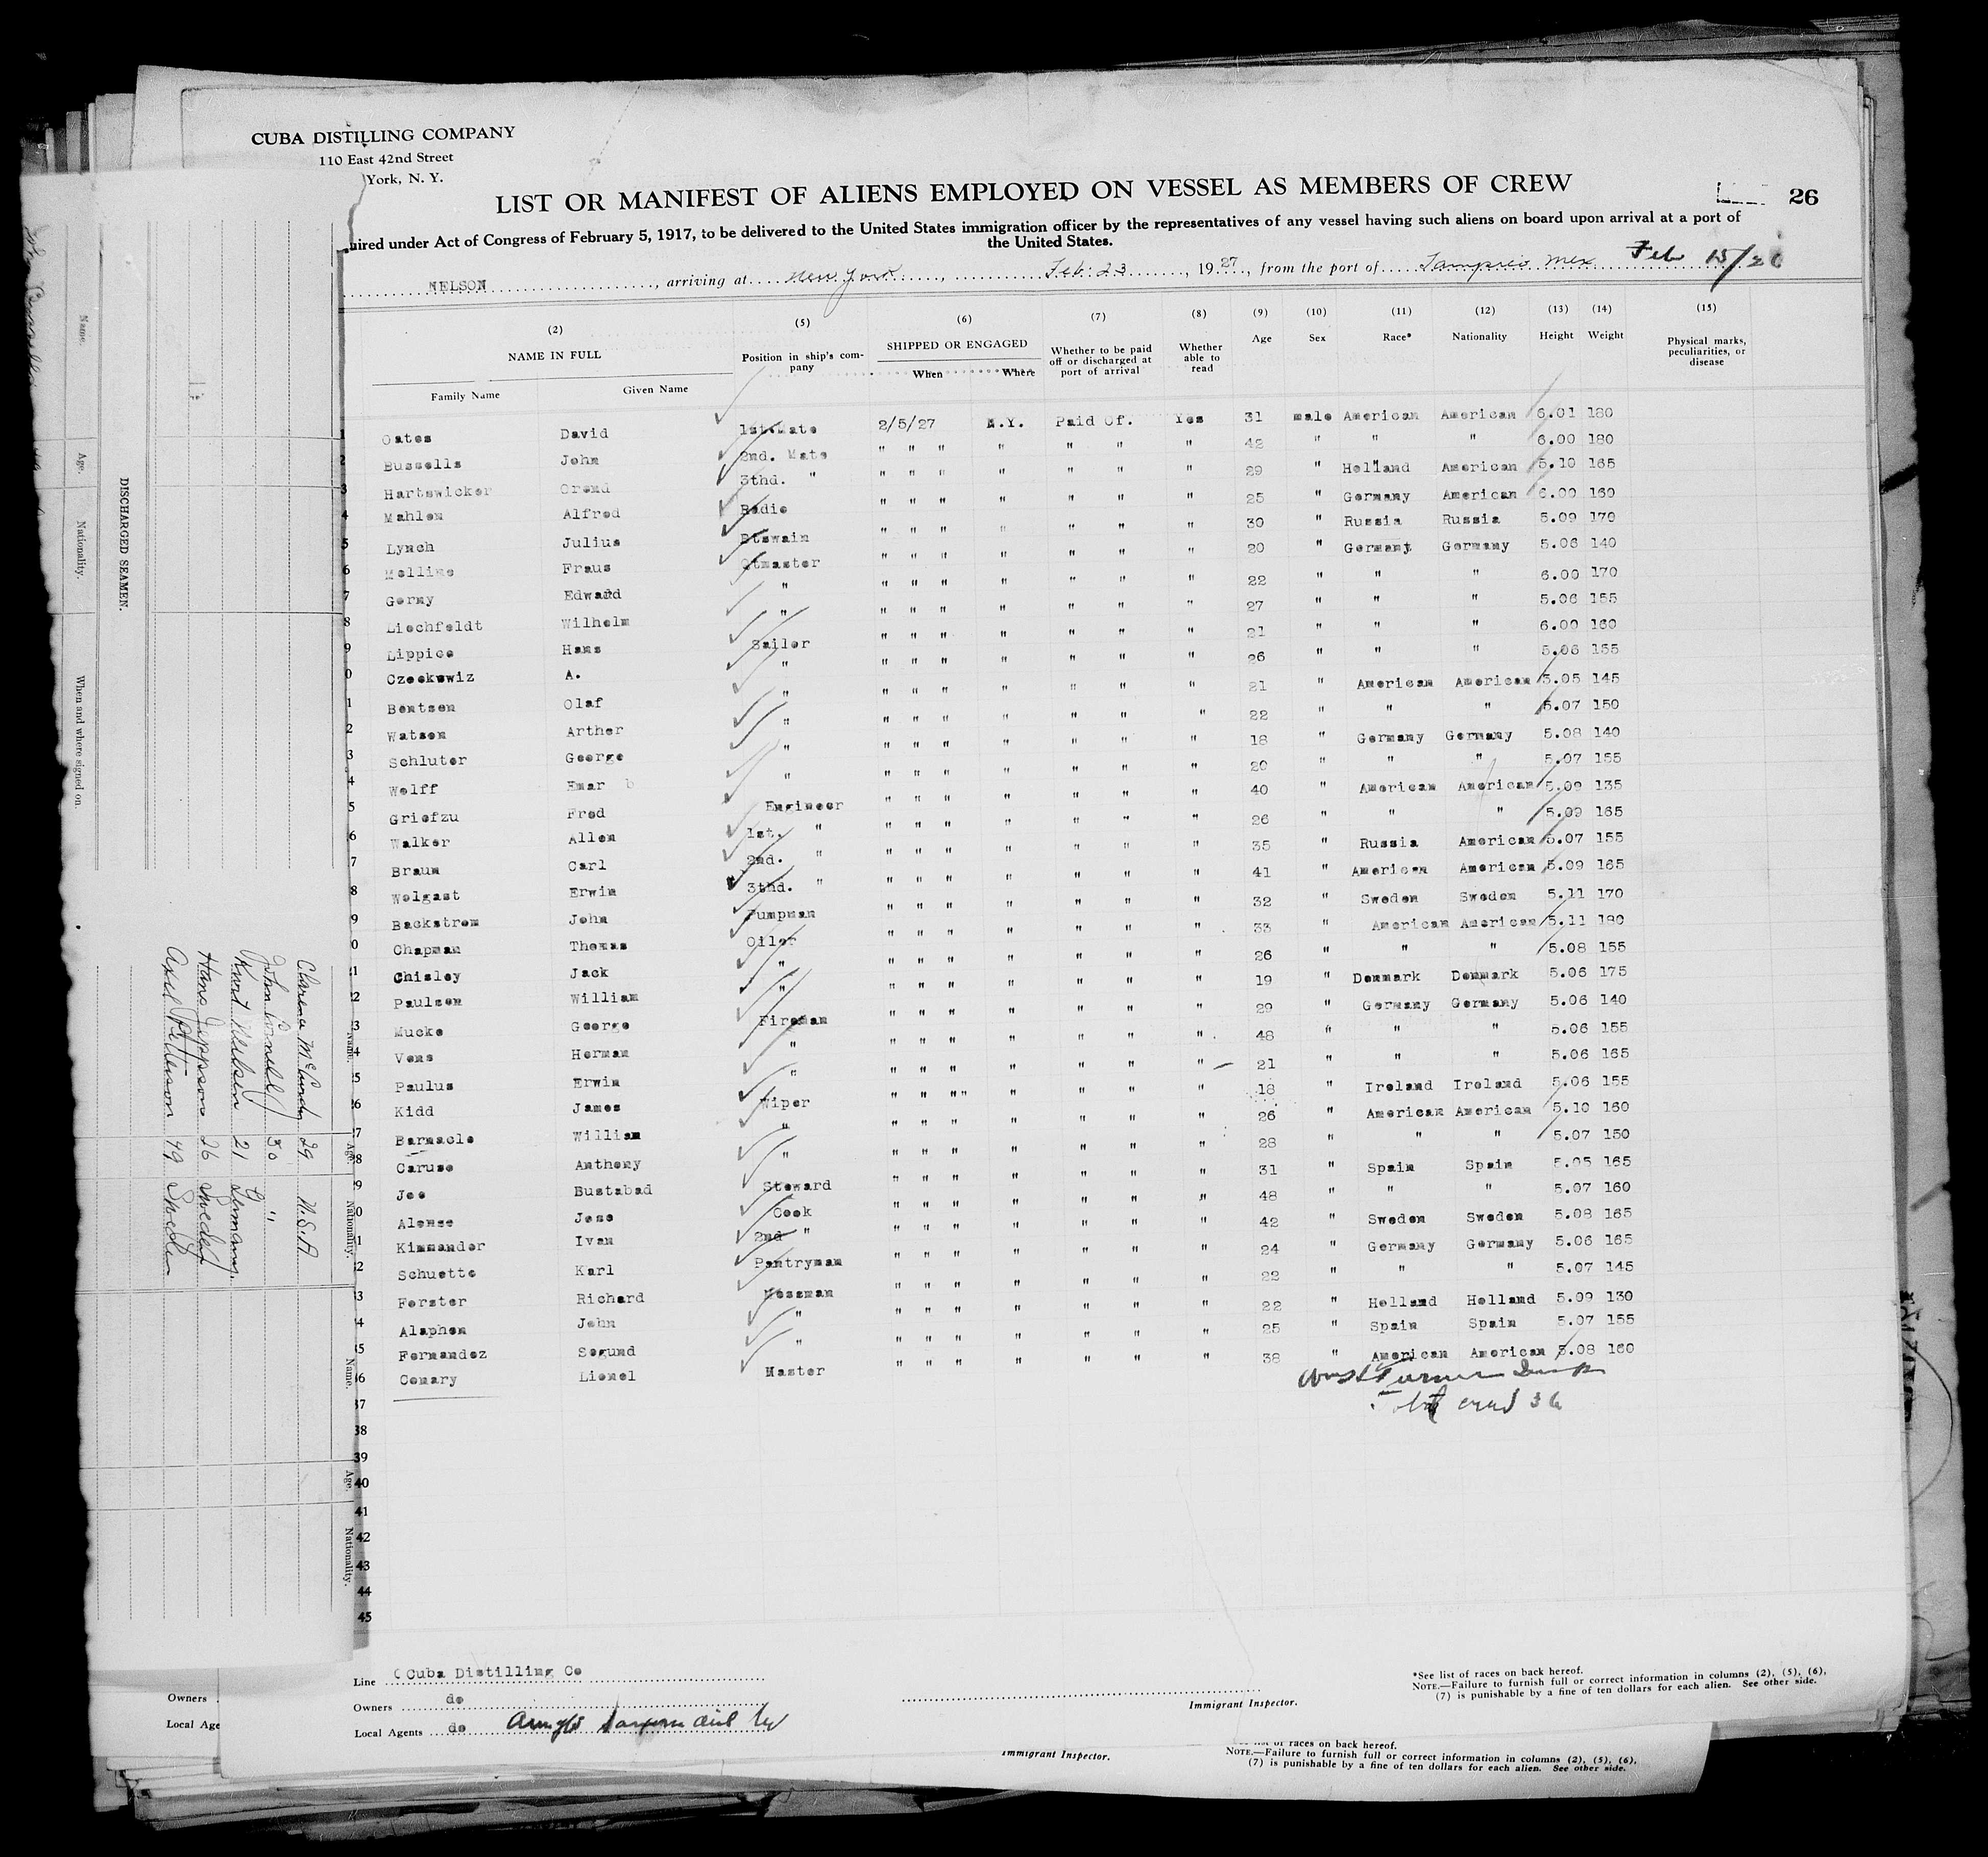 CUBA DISTILLING COMPANY
110 East 42nd Street
York, N. Y.
LIST OR MANIFEST OF ALIENS EMPLOYED ON VESSEL AS MEMBERS OF CREW
26
uired under Act of Congress of February 5, 1917, to be delivered to the United States immigration officer by the representatives of any vessel having such aliens on board upon arrival at a port of
the United States.
NELSON, arriving at New York, Feb. 23, 1927, from the port of Tampico Mex Feb 15/
(2) (5) (6) (7) (8) (9) (10) (11) (12) (13) (14) (15)
NAME IN FULL Position in ship's company SHIPPED OR ENGAGED Whether to be paid off or discharged at port of arrival Whether able to read Age Sex Race* Nationality Height Weight Physical marks, peculiarities, or disease
Family Name Given Name When Where
1 Oates David 1st.Mate 2/5/27 N.Y. Paid Of. Yes 31 male American American 6.01 180
2 Bussells John 2nd. Mate " " " " " " " 42 " " " 6.00 180
3 Hartswicker Orend 3thd. " " " " " " " " 29 " Holland American 5.10 165
4 Mahlen Alfred Radio " " " " " " " 25 " Germany American 6.00 160
5 Lynch Julius Btswain " " " " " " " 30 " Russia Russia 5.09 170
6 Melline Fraus Qtmaster " " " " " " " 20 " Germany Germany 5.06 140
7 Germy Edward " " " " " " " " 22 " " " 6.00 170
8 Liechfeldt Wilhelm " " " " " " " " 27 " " " 5.06 155
9 Lippice Hans Sailor " " " " " " " 21 " " " 6.00 160
0 Czeekowiz A. " " " " " " " " 26 " " " 5.06 155
1 Bentsen Olaf " " " " " " " " 21 " American American 5.05 145
2 Watson Arther " " " " " " " " 22 " " " 5.07 150
3 Schluter George " " " " " " " " 18 " Germany Germany 5.08 140
4 Wolff Emar " " " " " " " " 20 " " " 5.07 155
5 Griefzu Fred Engineer " " " " " " " 40 " American American 5.09 135
6 Walker Allen 1st. " " " " " " " " 26 " " " 5.09 165
7 Braun Carl 2nd. " " " " " " " " 35 " Russia American 5.07 155
8 Wolgast Erwin 3thd. " " " " " " " " 41 " American American 5.09 165
9 Backstrom John Pumpman " " " " " " " 32 " Sweden Sweden 5.11 170
0 Chapman Thomas Oiler " " " " " " " 33 " American American 5.11 180
1 Chisley Jack " " " " " " " " 26 " " " 5.08 155
2 Paulsen William " " " " " " " " 19 " Denmark Denmark 5.06 175
3 Mucke George Fireman " " " " " " " 29 " Germany Germany 5.06 140
4 Vens Herman " " " " " " " " 48 " " " 5.06 155
5 Paulus Erwin " " " " " " " " 21 " " " 5.06 165
26 Kidd James Wiper " " " " " " " 18 " Ireland Ireland 5.06 155
27 Barnacle William " " " " " " " " 26 " American American 5.10 160
28 Caruso Anthony " " " " " " " " 28 " " " 5.07 150
29 Joe Bustabad Steward " " " " " " " 31 " Spain Spain 5.05 165
0 Alonse Jose Cook " " " " " " " 48 " " " 5.07 160
1 Kinnander Ivan 2nd " " " " " " " " 42 " Sweden Sweden 5.08 165
2 Schuette Karl Pantryman " " " " " " " 24 " Germany Germany 5.06 165
3 Forster Richard Messman " " " " " " " 22 " " " 5.07 145
4 Alaphen John " " " " " " " " 22 " Holland Holland 5.09 130
5 Fernandez Segund " " " " " " " " 25 " Spain Spain 5.07 155
36 Comary Lionel Master " " " " " " " 38 " American American 5.08 160
37
Total crew 36
38
39
40
41
42
43
44
45
Line Cuba Distilling Co
Owners do
Local Agents do
Immigrant Inspector.
*See list of races on back hereof.
NOTE.—Failure to furnish full or correct information in columns (2), (5), (6),
(7) is punishable by a fine of ten dollars for each alien. See other side.
Owners
Local Age
Immigrant Inspector.
list of races on back hereof.
NOTE.—Failure to furnish full or correct information in columns (2), (5), (6),
(7) is punishable by a fine of ten dollars for each alien. See other side.
DISCHARGED SEAMEN.
Name. Age. Nationality. When and where signed on.
Name. Age. Nationality.
Clarence McCurdy 29 U.S.A
John 30 "
Knut Nielsen 21 Germany.
Hans Jeppson 26 Sweden
Axel Petterson 49 Sweden
Name. Age. Nationality.